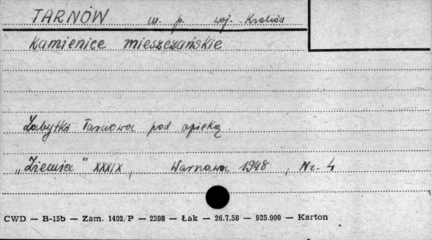 TARNÓW m. p. woj. Kraków
Kamienice mieszczańskie
Zabytki Tarnowa pod opieką
„Ziemia" XXXIX, Warszawa 1948, Nr. 4
CWD — B-15b — Zam. 1402/P — 2398 — Łak — 26.7.58 — 935.000 — Karton